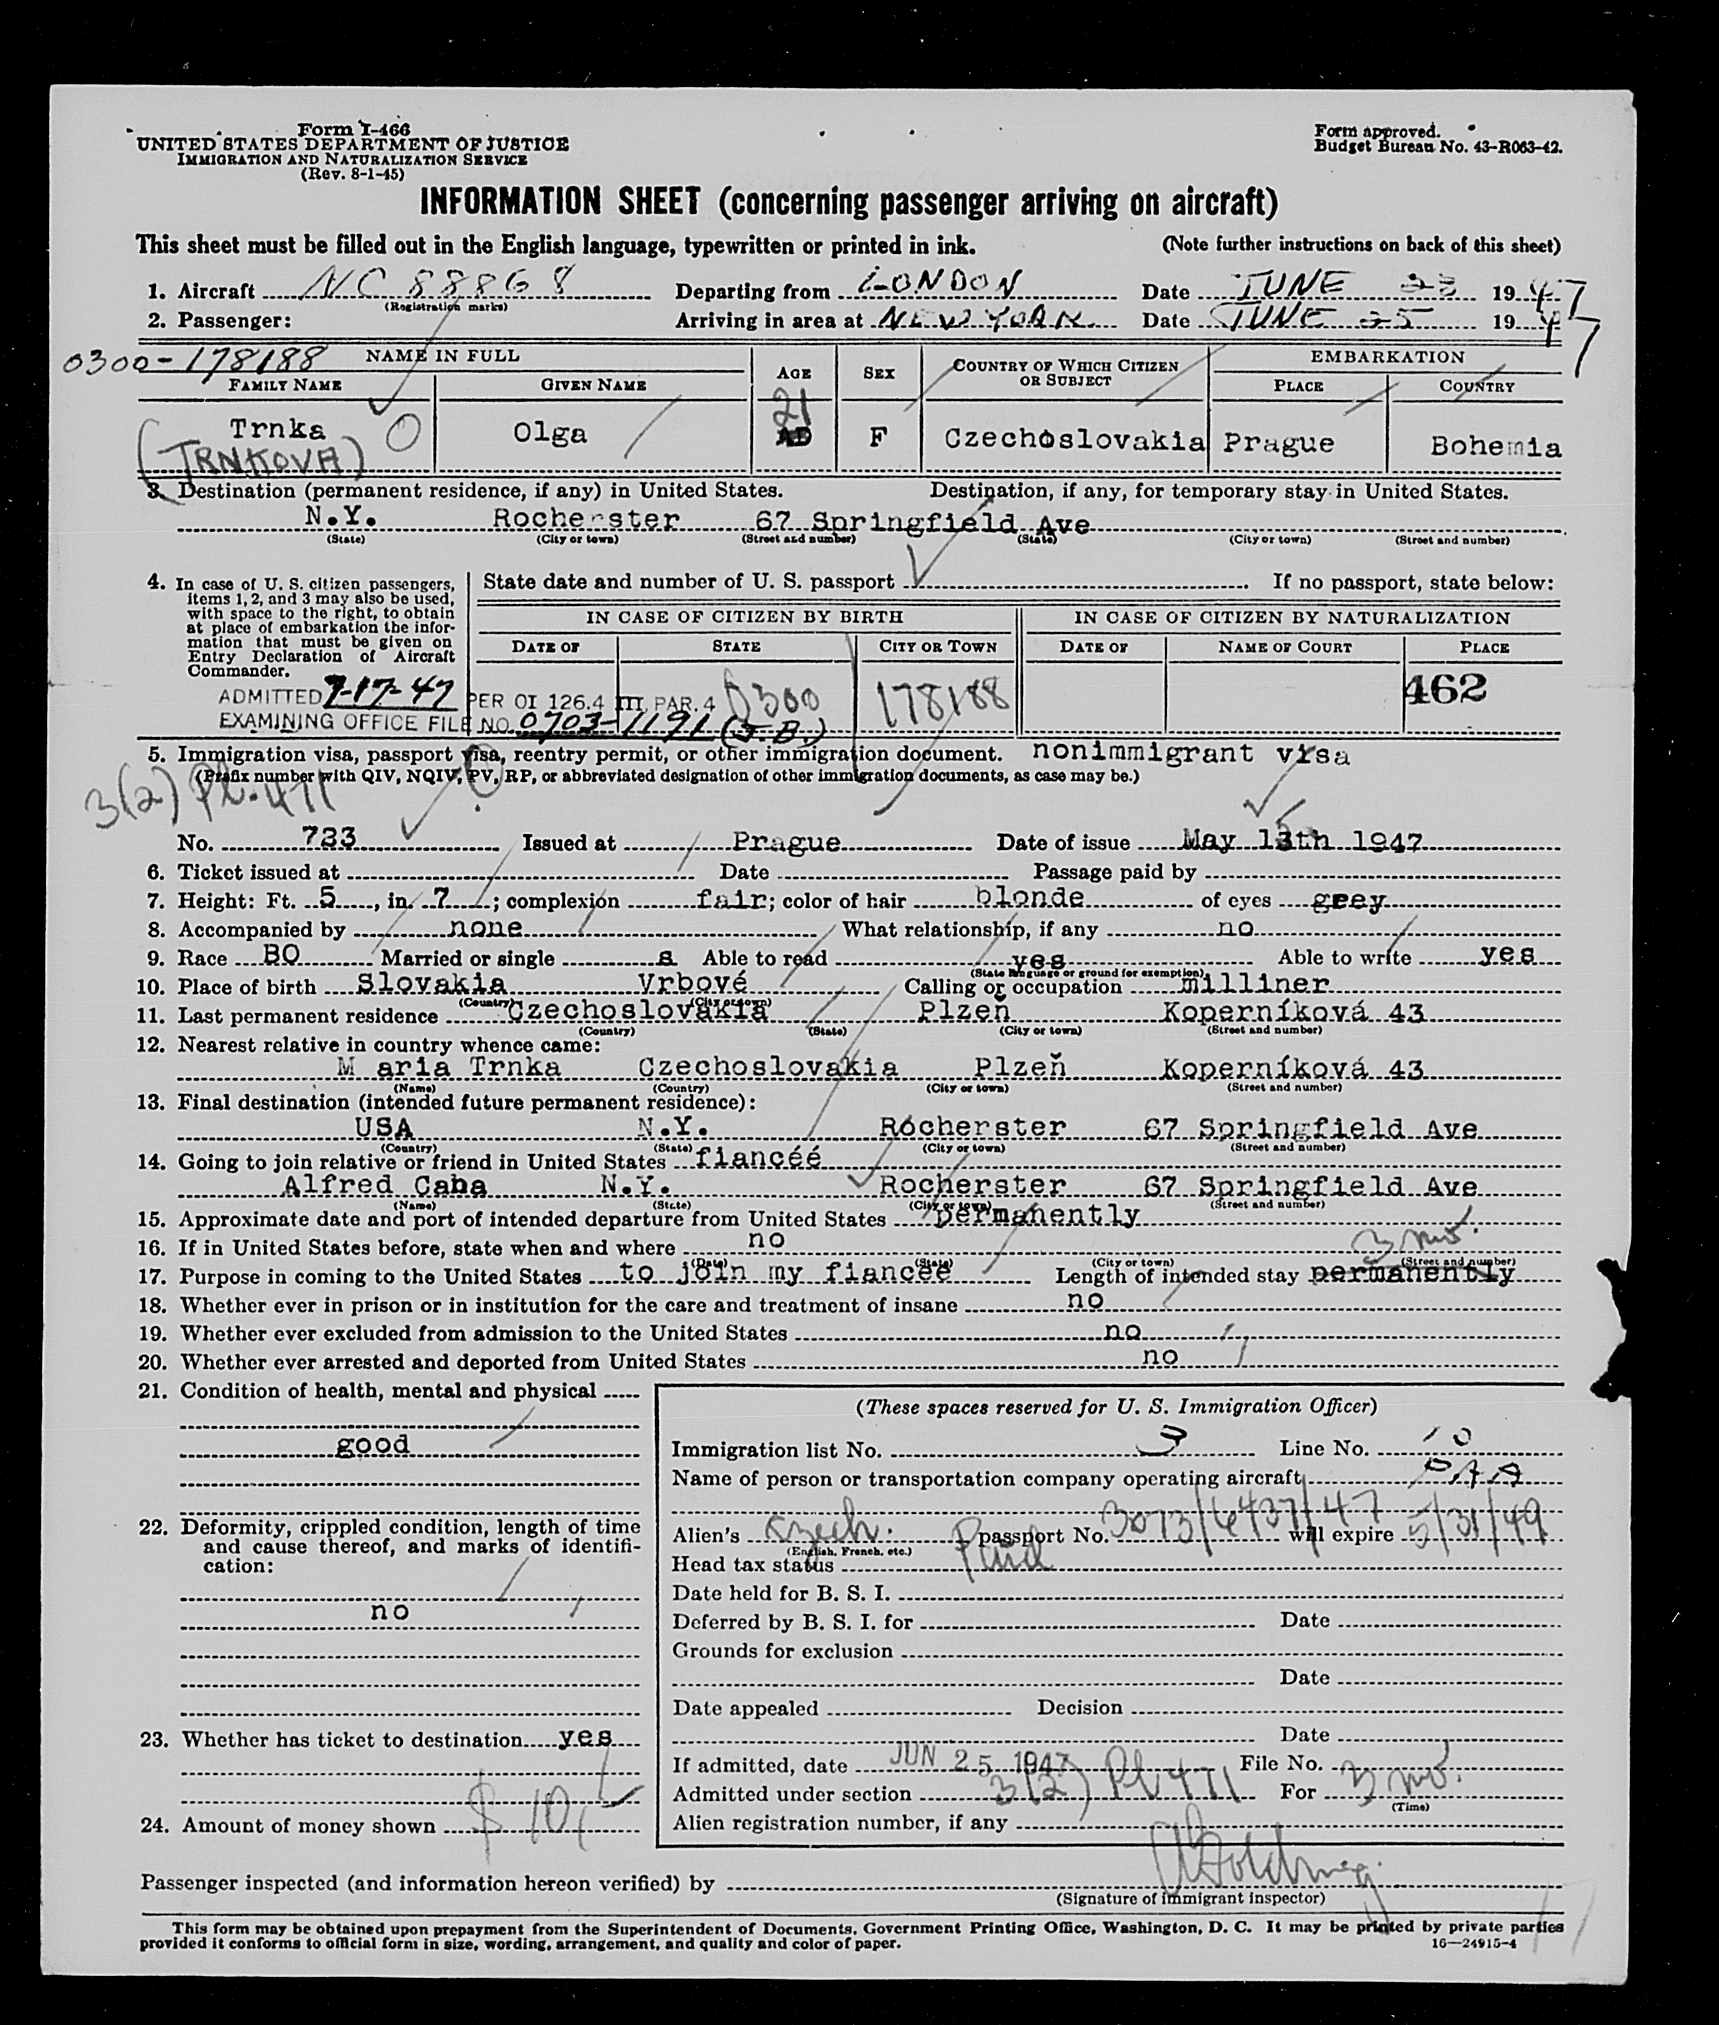 Form I-466
UNITED STATES DEPARTMENT OF JUSTICE
IMMIGRATION AND NATURALIZATION SERVICE
(Rev. 8-1-45)
Form approved.
Budget Bureau No. 43-R063-42.
INFORMATION SHEET (concerning passenger arriving on aircraft)
This sheet must be filled out in the English language, typewritten or printed in ink. (Note further instructions on back of this sheet)
1. Aircraft NC 88868 Departing from LONDON Date JUNE 23 1947
(Registration marks)
2. Passenger: Arriving in area at NEW YORK Date JUNE 25 1947
0300-178188 NAME IN FULL AGE SEX COUNTRY OF WHICH CITIZEN OR SUBJECT EMBARKATION
FAMILY NAME GIVEN NAME PLACE COUNTRY
21
Trnka O Olga F Czechoslovakia Prague Bohemia
(TRNKOVA)
3. Destination (permanent residence, if any) in United States. Destination, if any, for temporary stay in United States.
N.Y. Rocherster 67 Springfield Ave
(State) (City or town) (Street and number) (State) (City or town) (Street and number)
4. In case of U. S. citizen passengers, items 1, 2, and 3 may also be used, with space to the right, to obtain at place of embarkation the information that must be given on Entry Declaration of Aircraft Commander.
State date and number of U. S. passport If no passport, state below:
IN CASE OF CITIZEN BY BIRTH IN CASE OF CITIZEN BY NATURALIZATION
DATE OF STATE CITY OR TOWN DATE OF NAME OF COURT PLACE
462
ADMITTED 7-17-47 PER OI 126.4 III, PAR. 4 0300 178188
EXAMINING OFFICE FILE NO. 0703-1191 (J.B.)
5. Immigration visa, passport visa, reentry permit, or other immigration document. nonimmigrant visa
(Prefix number with QIV, NQIV, PV, RP, or abbreviated designation of other immigration documents, as case may be.)
3(2) PL. 471
No. 733 Issued at Prague Date of issue May 13th 1947
6. Ticket issued at Date Passage paid by
7. Height: Ft. 5, in. 7; complexion fair; color of hair blonde of eyes grey
8. Accompanied by none What relationship, if any no
9. Race BO Married or single s Able to read yes Able to write yes
(State language or ground for exemption)
10. Place of birth Slovakia Vrbové Calling or occupation milliner
(Country) (City or town)
11. Last permanent residence Czechoslovakia Plzeň Koperníková 43
(Country) (State) (City or town) (Street and number)
12. Nearest relative in country whence came:
M aria Trnka Czechoslovakia Plzeň Koperníková 43
(Name) (Country) (City or town) (Street and number)
13. Final destination (intended future permanent residence):
USA N.Y. Rocherster 67 Springfield Ave
(Country) (State) (City or town) (Street and number)
14. Going to join relative or friend in United States fiancéé
Alfred Caha N.Y. Rocherster 67 Springfield Ave
(Name) (State) (City or town) (Street and number)
15. Approximate date and port of intended departure from United States permanently
16. If in United States before, state when and where no 3 mo.
(Date) (State) (City or town) (Street and number)
17. Purpose in coming to the United States to join my fiancée Length of intended stay permanently
18. Whether ever in prison or in institution for the care and treatment of insane no
19. Whether ever excluded from admission to the United States no
20. Whether ever arrested and deported from United States no
21. Condition of health, mental and physical
good
22. Deformity, crippled condition, length of time and cause thereof, and marks of identification:
no
23. Whether has ticket to destination yes
24. Amount of money shown $ 10
(These spaces reserved for U. S. Immigration Officer)
Immigration list No. 3 Line No. 10
Name of person or transportation company operating aircraft PAA
Alien's Czech. passport No. 3073/6437/47 will expire 5/31/49
(English, French, etc.)
Head tax status Paid
Date held for B. S. I.
Deferred by B. S. I. for Date
Grounds for exclusion
Date
Date appealed Decision
Date
If admitted, date JUN 25 1947 File No.
Admitted under section 3(2) PL 471 For 3 mo.
(Time)
Alien registration number, if any
Passenger inspected (and information hereon verified) by
(Signature of immigrant inspector)
This form may be obtained upon prepayment from the Superintendent of Documents, Government Printing Office, Washington, D. C. It may be printed by private parties
provided it conforms to official form in size, wording, arrangement, and quality and color of paper.
16—24915-4